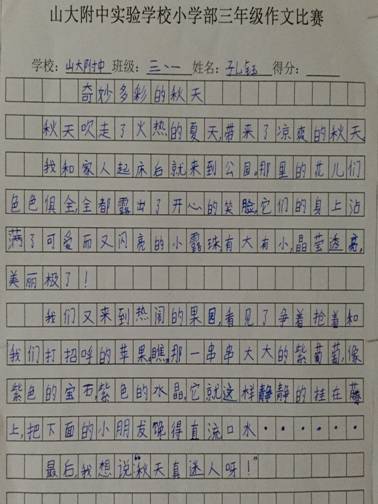 山大附中实验学校小学部三年级作文比赛
学校：山大附中 班级：三、一 姓名：孔钰 得分：
奇妙多彩的秋天
秋天吹走了火热的夏天,带来了凉爽的秋天。
我和家人起床后就来到公园,那里的花儿们
色色俱全,全都露出了开心的笑脸,它们的身上沾
满了可爱而又闪亮的小露珠有大有小,晶莹透亮,
美丽极了！
我们又来到热闹的果园,看见了争着抢着和
我们打招呼的苹果,瞧,那一串串大大的紫葡萄,像
紫色的宝石,紫色的水晶,它就这样静静的挂在藤
上,把下面的小朋友馋得直流口水······
最后,我想说"秋天真迷人呀！"